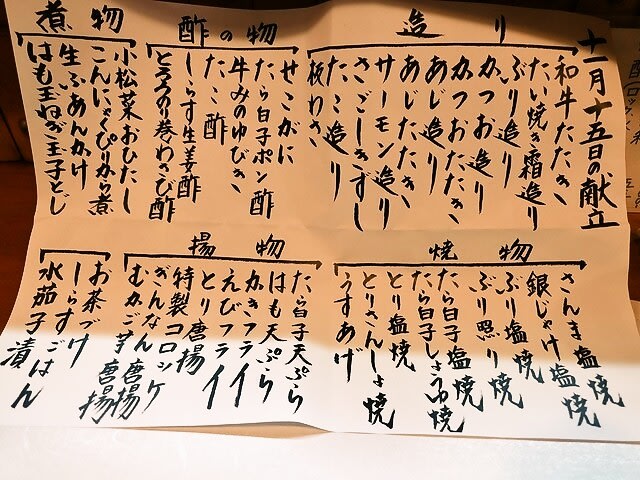 十一月十五日の献立
造り
和牛たたき
たい焼き霜造り
ぶり造り
かつお造り
かつおたたき
あじ造り
あじたたき
サーモン造り
さごしきずし
たこ造り
板わさ
酢の物
せこがに
たら白子ポン酢
牛みのゆびき
たこ酢
しらす生姜酢
とろろのり巻わさび酢
煮物
小松菜おひたし
こんにゃくぴりから煮
生ふあんかけ
はも玉ねぎ玉子とじ
焼物
さんま塩焼
銀じゃけ塩焼
ぶり塩焼
ぶり照り焼
たら白子塩焼
たら白子しょうゆ焼
とり塩焼
とりさんしょ焼
うすあげ
揚物
たら白子天ぷら
はも天ぷら
かきフライ
えびフライ
とり唐揚
特製コロッケ
ぎんなん唐揚
むかご芋唐揚
お茶づけ
しらすごはん
水茄子漬